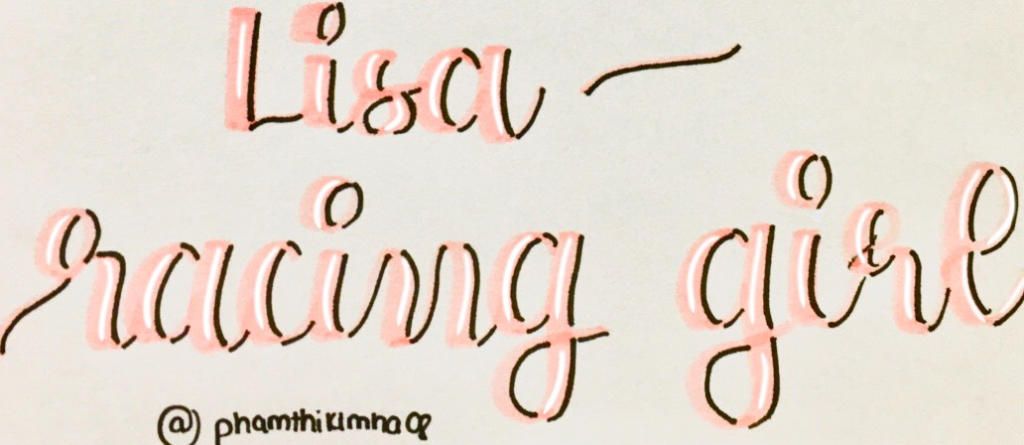 Lisa —
racing girl
@phamthikimha08